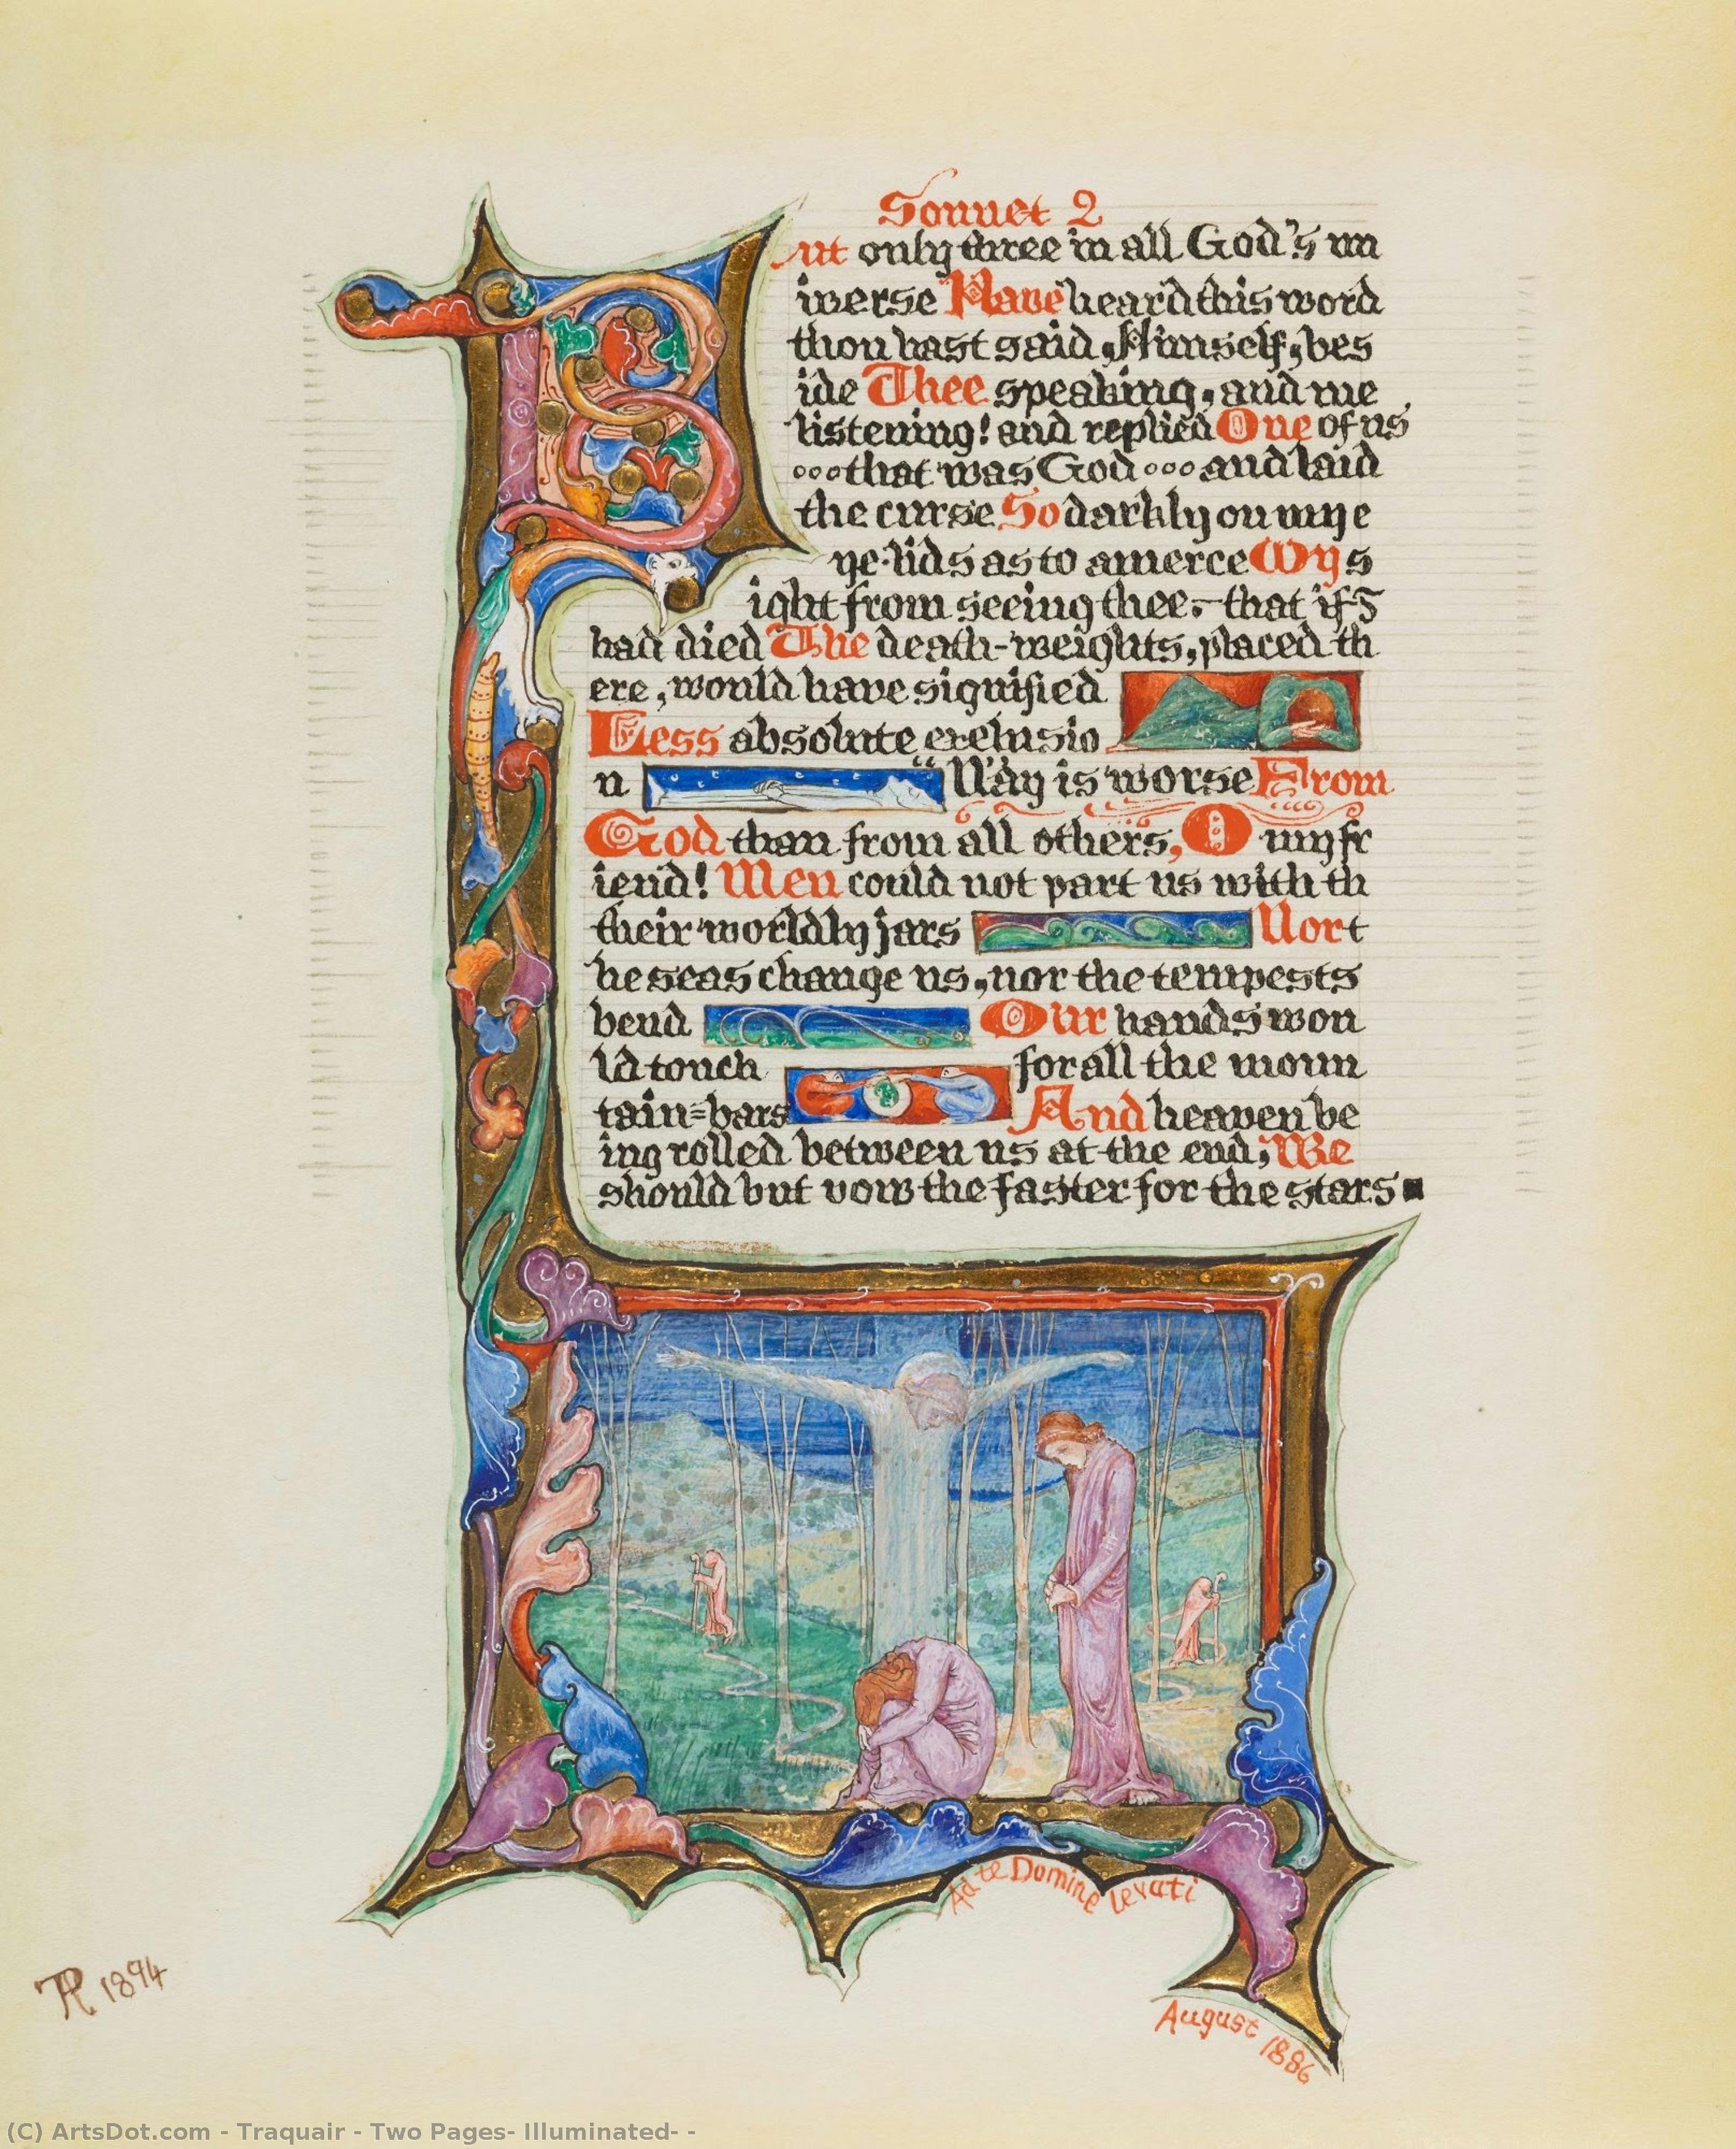 Sonnet 2
But only three in all God's un
iverse Have heard this word
thou hast said, Himself, bes
ide Thee speaking, and me
listening! and replied One of us
...that was God...and laid
the curse So darkly on my e
ye-lids as to amerce My s
ight from seeing thee,-that if I
had died The death-weights, placed th
ere, would have signified
Less absolute exclusio
n "Nay is worse From
God than from all others, O my fr
iend! Men could not part us with th
their worldly jars Nor t
he seas change us, nor the tempests
bend Our hands wou
ld touch for all the moun
tain=bars And heaven be
ing rolled between us at the end, We
should but vow the faster for the stars
Ad te Domine levavi
August 1886
1894
(C) ArtsDot.com - Traquair - Two Pages- Illuminated- -